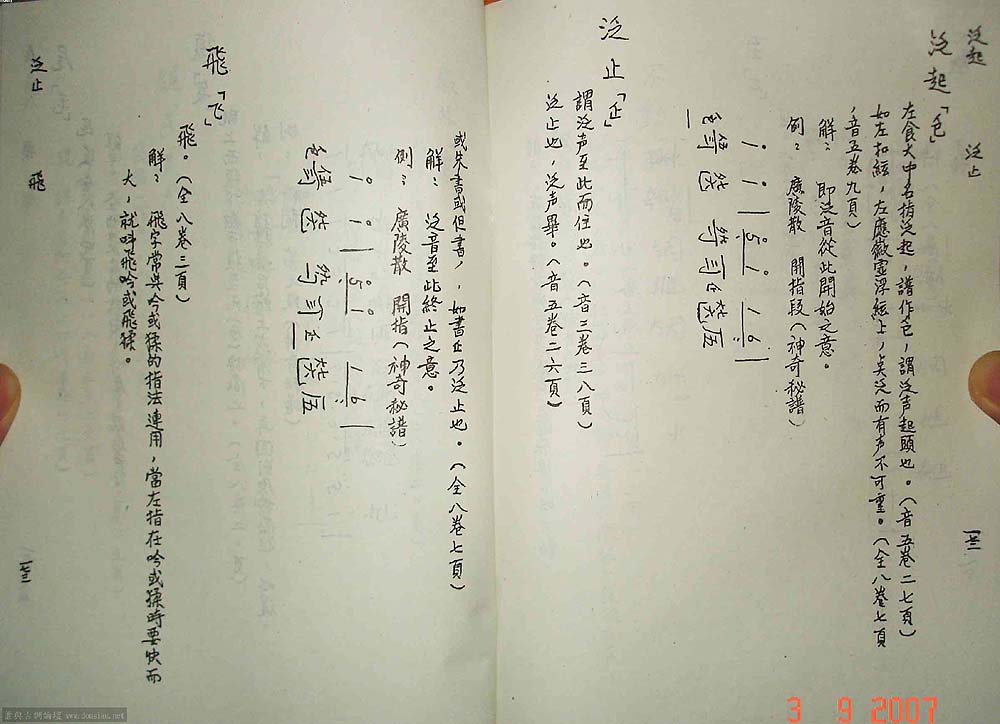 泛起 泛止
泛起「𠂊」
左食大中名指泛起，譜作，謂泛声起頭也。（音五卷二七頁）
如左扣絃，左應徽虛浮絃上，点泛而有声不可重。（全八卷七頁
，音五卷九頁）
解： 即泛音從此開始之意。
例： 廣陵散 開指段（神奇秘譜）
i i | 5 i 1 6 |
泛止「正」
謂泛声至此而住也。（音三卷三八頁）
泛止也，泛声畢。（音五卷二六頁）
或朱書或但書，如書正乃泛止也。（全八卷七頁）
解： 泛音至此終止之意。
例： 廣陵散 開指（神奇秘譜）
i i | 5 i 1 6 |
飛「飞」
飛。（全八卷三頁）
解： 飛字常與吟或猱的指法連用，當左指在吟或猱時要快而
大，就叫飛吟或飛猱。
泛止 飛
3 9 2007
www.donsiau.net